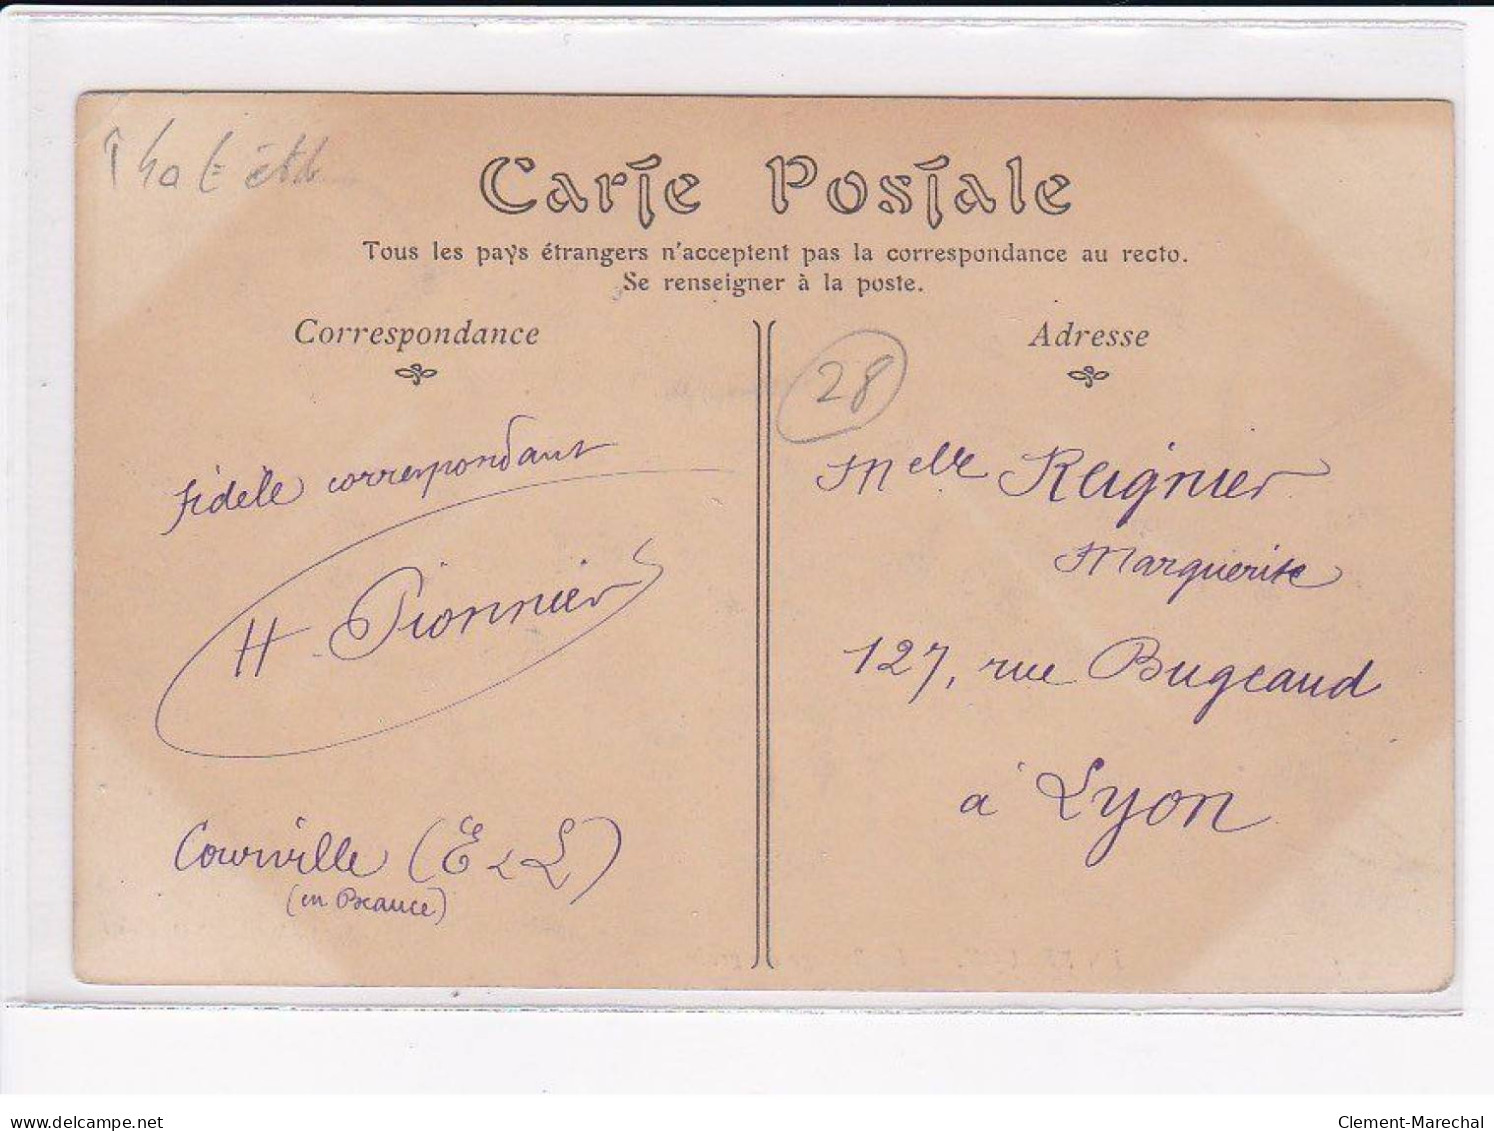 Carte Postale
Tous les pays étrangers n'acceptent pas la correspondance au recto.
Se renseigner à la poste.
Correspondance
fidèle correspondant
H. Pionnier
Courville (E & L)
(en Beauce)
Adresse
28
Melle Reignier
Marguerite
127, rue Bugeaud
à Lyon
delcampe.net
Clement-Marechal